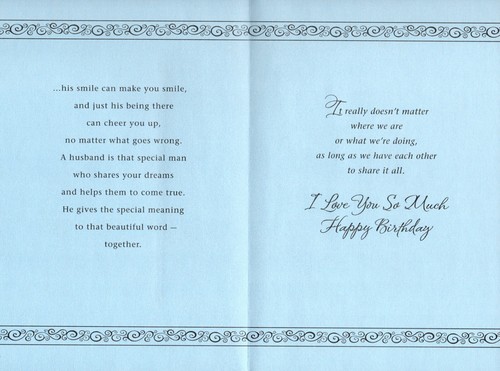 ...his smile can make you smile,
and just his being there
can cheer you up,
no matter what goes wrong.
A husband is that special man
who shares your dreams
and helps them to come true.
He gives the special meaning
to that beautiful word —
together.
It really doesn't matter
where we are
or what we're doing,
as long as we have each other
to share it all.
I Love You So Much
Happy Birthday